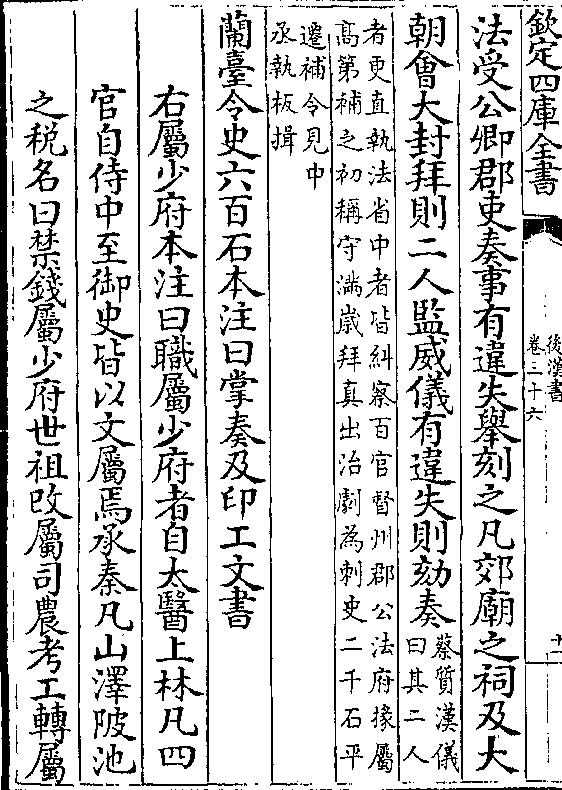 欽定四庫全書
後漢書
卷三十六
十一
法受公卿郡吏奏事有違失舉刻之凡郊廟之祠及大
朝會大封拜則二人監威儀有違失則劾奏
蔡質漢儀
曰其二人
者更直執法省中者皆糾察百官督州郡公法府掾屬
髙第補之初稱守滿歲拜真出治劇為刺史二千石平
遷補令見中
丞執板揖
蘭臺令史六百石本注曰掌奏及印工文書
右屬少府本注曰職屬少府者自太醫上林凡四
官自侍中至御史皆以文屬焉承秦凡山澤陂池
之税名曰禁錢屬少府世祖改屬司農考工轉屬